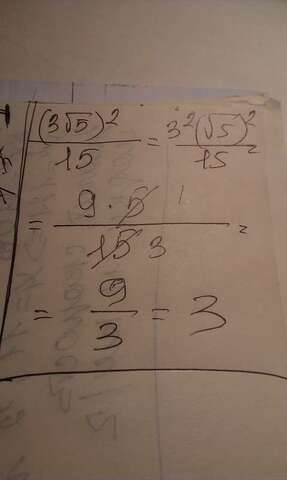 (3√5)²/15 = 3²(√5)²/15 =
= 9·5 1/15 3 =
= 9/3 = 3